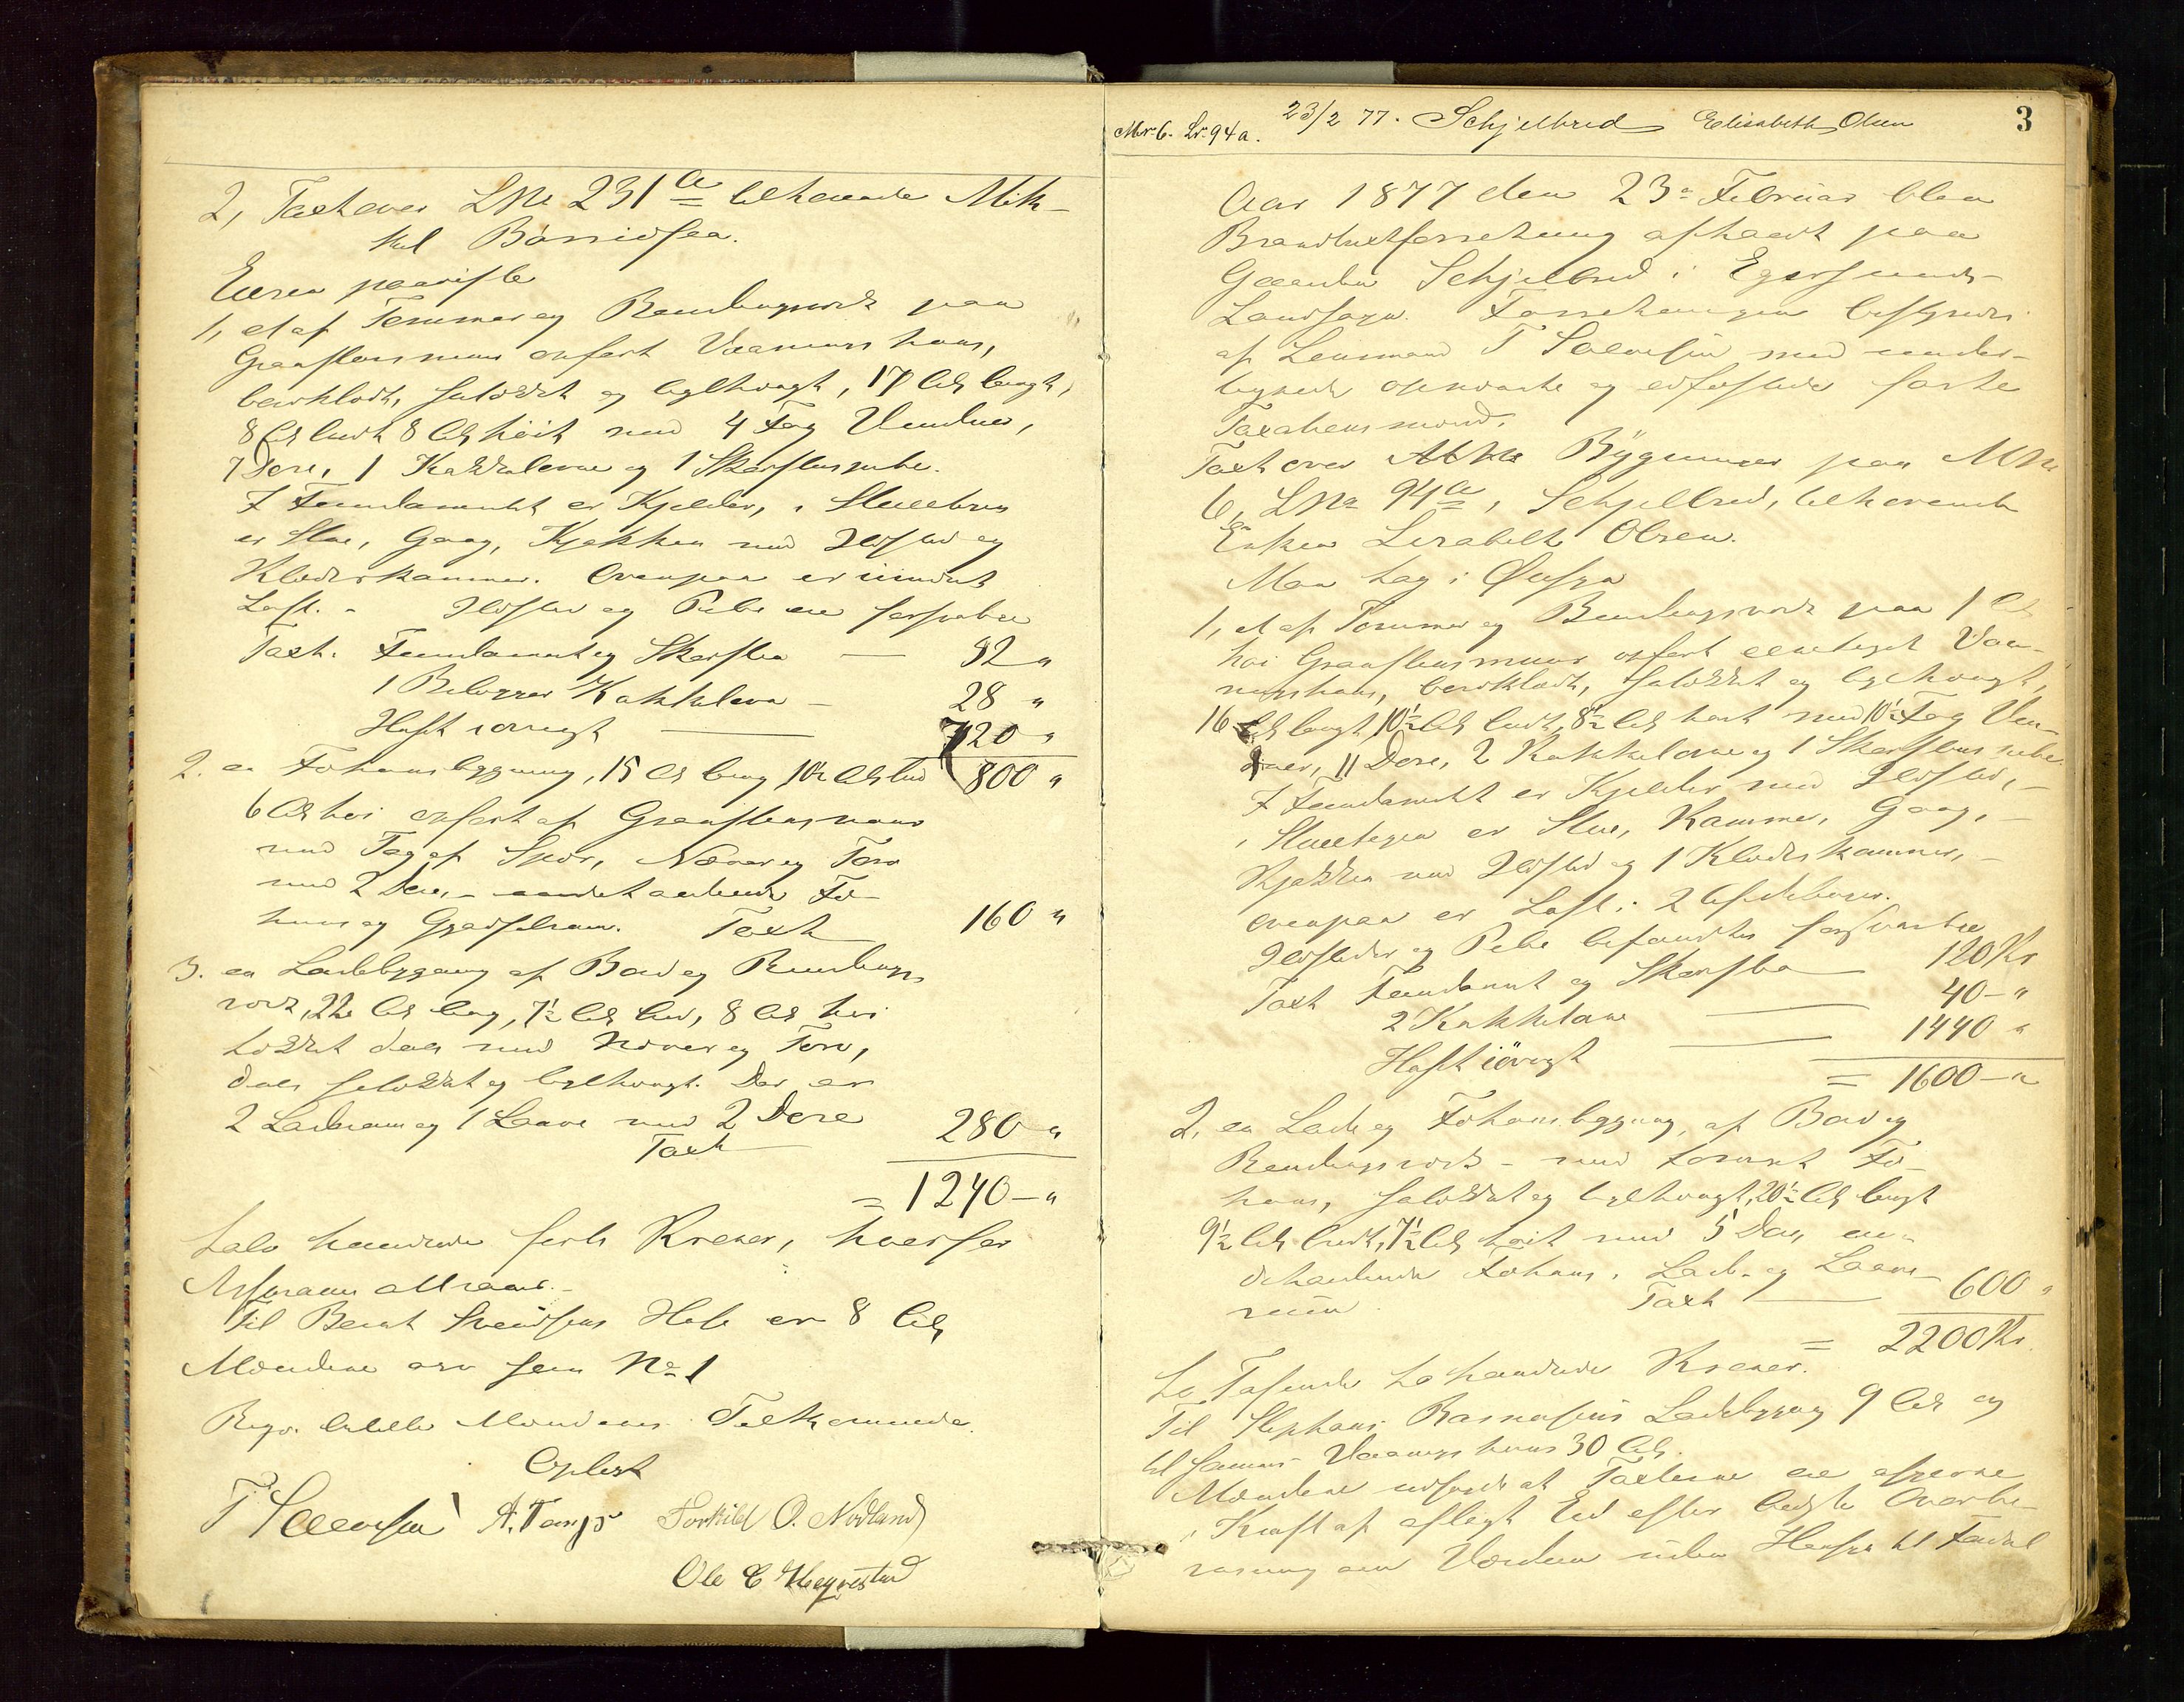 2, Taxt over LNr 231 a tilhørende Mik-
kel Bøssidsea.
Eieren paaviste
1, et af Tømmer og Bendingsverk paa
Graastensmuur opført Vaanings huus,
bordklædt, sutækket og tegltængt, 17 Al. langt,
8 Al. bredt 8 Al. høit med 4 Fag Vinduer,
7 Døre, 1 Kakkelovne og 1 Skorstenspibe.
I Fundamentet er Kjelder, i Stueetagen
er Stue, Gang, Kjøkken med Ildsted og
Klæderkammer. Ovenpaa er uindret
Loft. - Ildsted og Pibe ere forsvarlige
Taxt. Fundament og Skorsten — 52 "
1 Bilægger Kakkelovn — 28 "
Huset iøvrigt — 720 "
800 "
2. en Fæhuusbygning, 15 Al. lang 10½ Al. bred
6 Al. høi opført af Graastensmuur
med Tag af Spær, Næver og Torv
med 2 Døre, - indeholdende Fæ-
huus og Gjødselrum. Taxt 160 "
3. en Ladebygning af Bord og Bendings
verk, 22 Al. lang, 7½ Al. bred, 8 Al. høi
tækket dels med Næver og Torv,
dels sutækket og tegltængt. Der er
2 Laderum og 1 Laave med 2 Døre
Taxt 280 "
= 1240 - "
tolv hundrede firti Kroner, hvorfor
Assurance attraaes.
Til Bernt Svendsens Huse er 8 Al.
Mændene osv som No 1
Regn. bilatte Mændenes Tilkommende.
Oplæst
T Svensen A. Tengs Torkild O. Nodland
Ole E Hegrestad
Mr. 6. Lr. 94 a. 23/2 77. Schjelbred Elisabeth Olsen 3
Aar 1877 den 23de Februar blev
Brandtaxtforretning afholdt paa
Gaarden Schjelbred i Egersunds
Landsogn. Forretningen bestyredes
af Lensmand T Svensen med under-
tegnede opnævnte og edfæstede faste
Taxationsmænd.
Taxt over Bygninger paa MNr
6, LNr 94 a, Schjelbred, tilhørende
Enken Lisabeth Olsen.
Man tog i Øiesyn
1, et af Tømmer og Bendingsverk paa 1 Al
høi Graastensmuur opført eenetages Vaa-
ningshuus, bordklædt, sutækket og tegltængt,
16 Al. langt 10½ Al. bredt, 8½ Al. høit med 10½ Fag Vin-
duer, 11 Døre, 2 Kakkelovne og 1 Skorstens pibe.
I Fundamentet er Kjelder med Ildsted,
i Stueetagen er Stue, Kammer, Gang,
Kjøkken med Ildsted og 1 Klæderkammer,
ovenpaa er Loft i 2 Afdelinger.
Ildsteder og Pibe befandtes forsvarlige
Taxt Fundament og Skorsten — 120 Kr
2 Kakkelovne — 40 - "
Huset iøvrigt — 1440 "
= 1600 - "
2, en Lade og Fæhuusbygning, af Bord og
Bendingsverk - med tømret Fæ-
huus, sutækket og tegltængt, 20½ Al. langt
9½ Al. bredt, 7½ Al. høit med 5 Døre, in-
deholdende Fæhuus, Lade- og Laave-
rum. Taxt — 600 "
= 2200 Kr.
to Tusende to hundrede Kroner.
Til Stephan Rasmussens Ladebygning 9 Al. og
til sammes Vaanings huus 30 Al.
Mændene udsagde at Taxterne ere afgivne
i Kraft af aflagt Ed efter bedste Overbe-
visning om Værdien uden Hensyn til Fordel